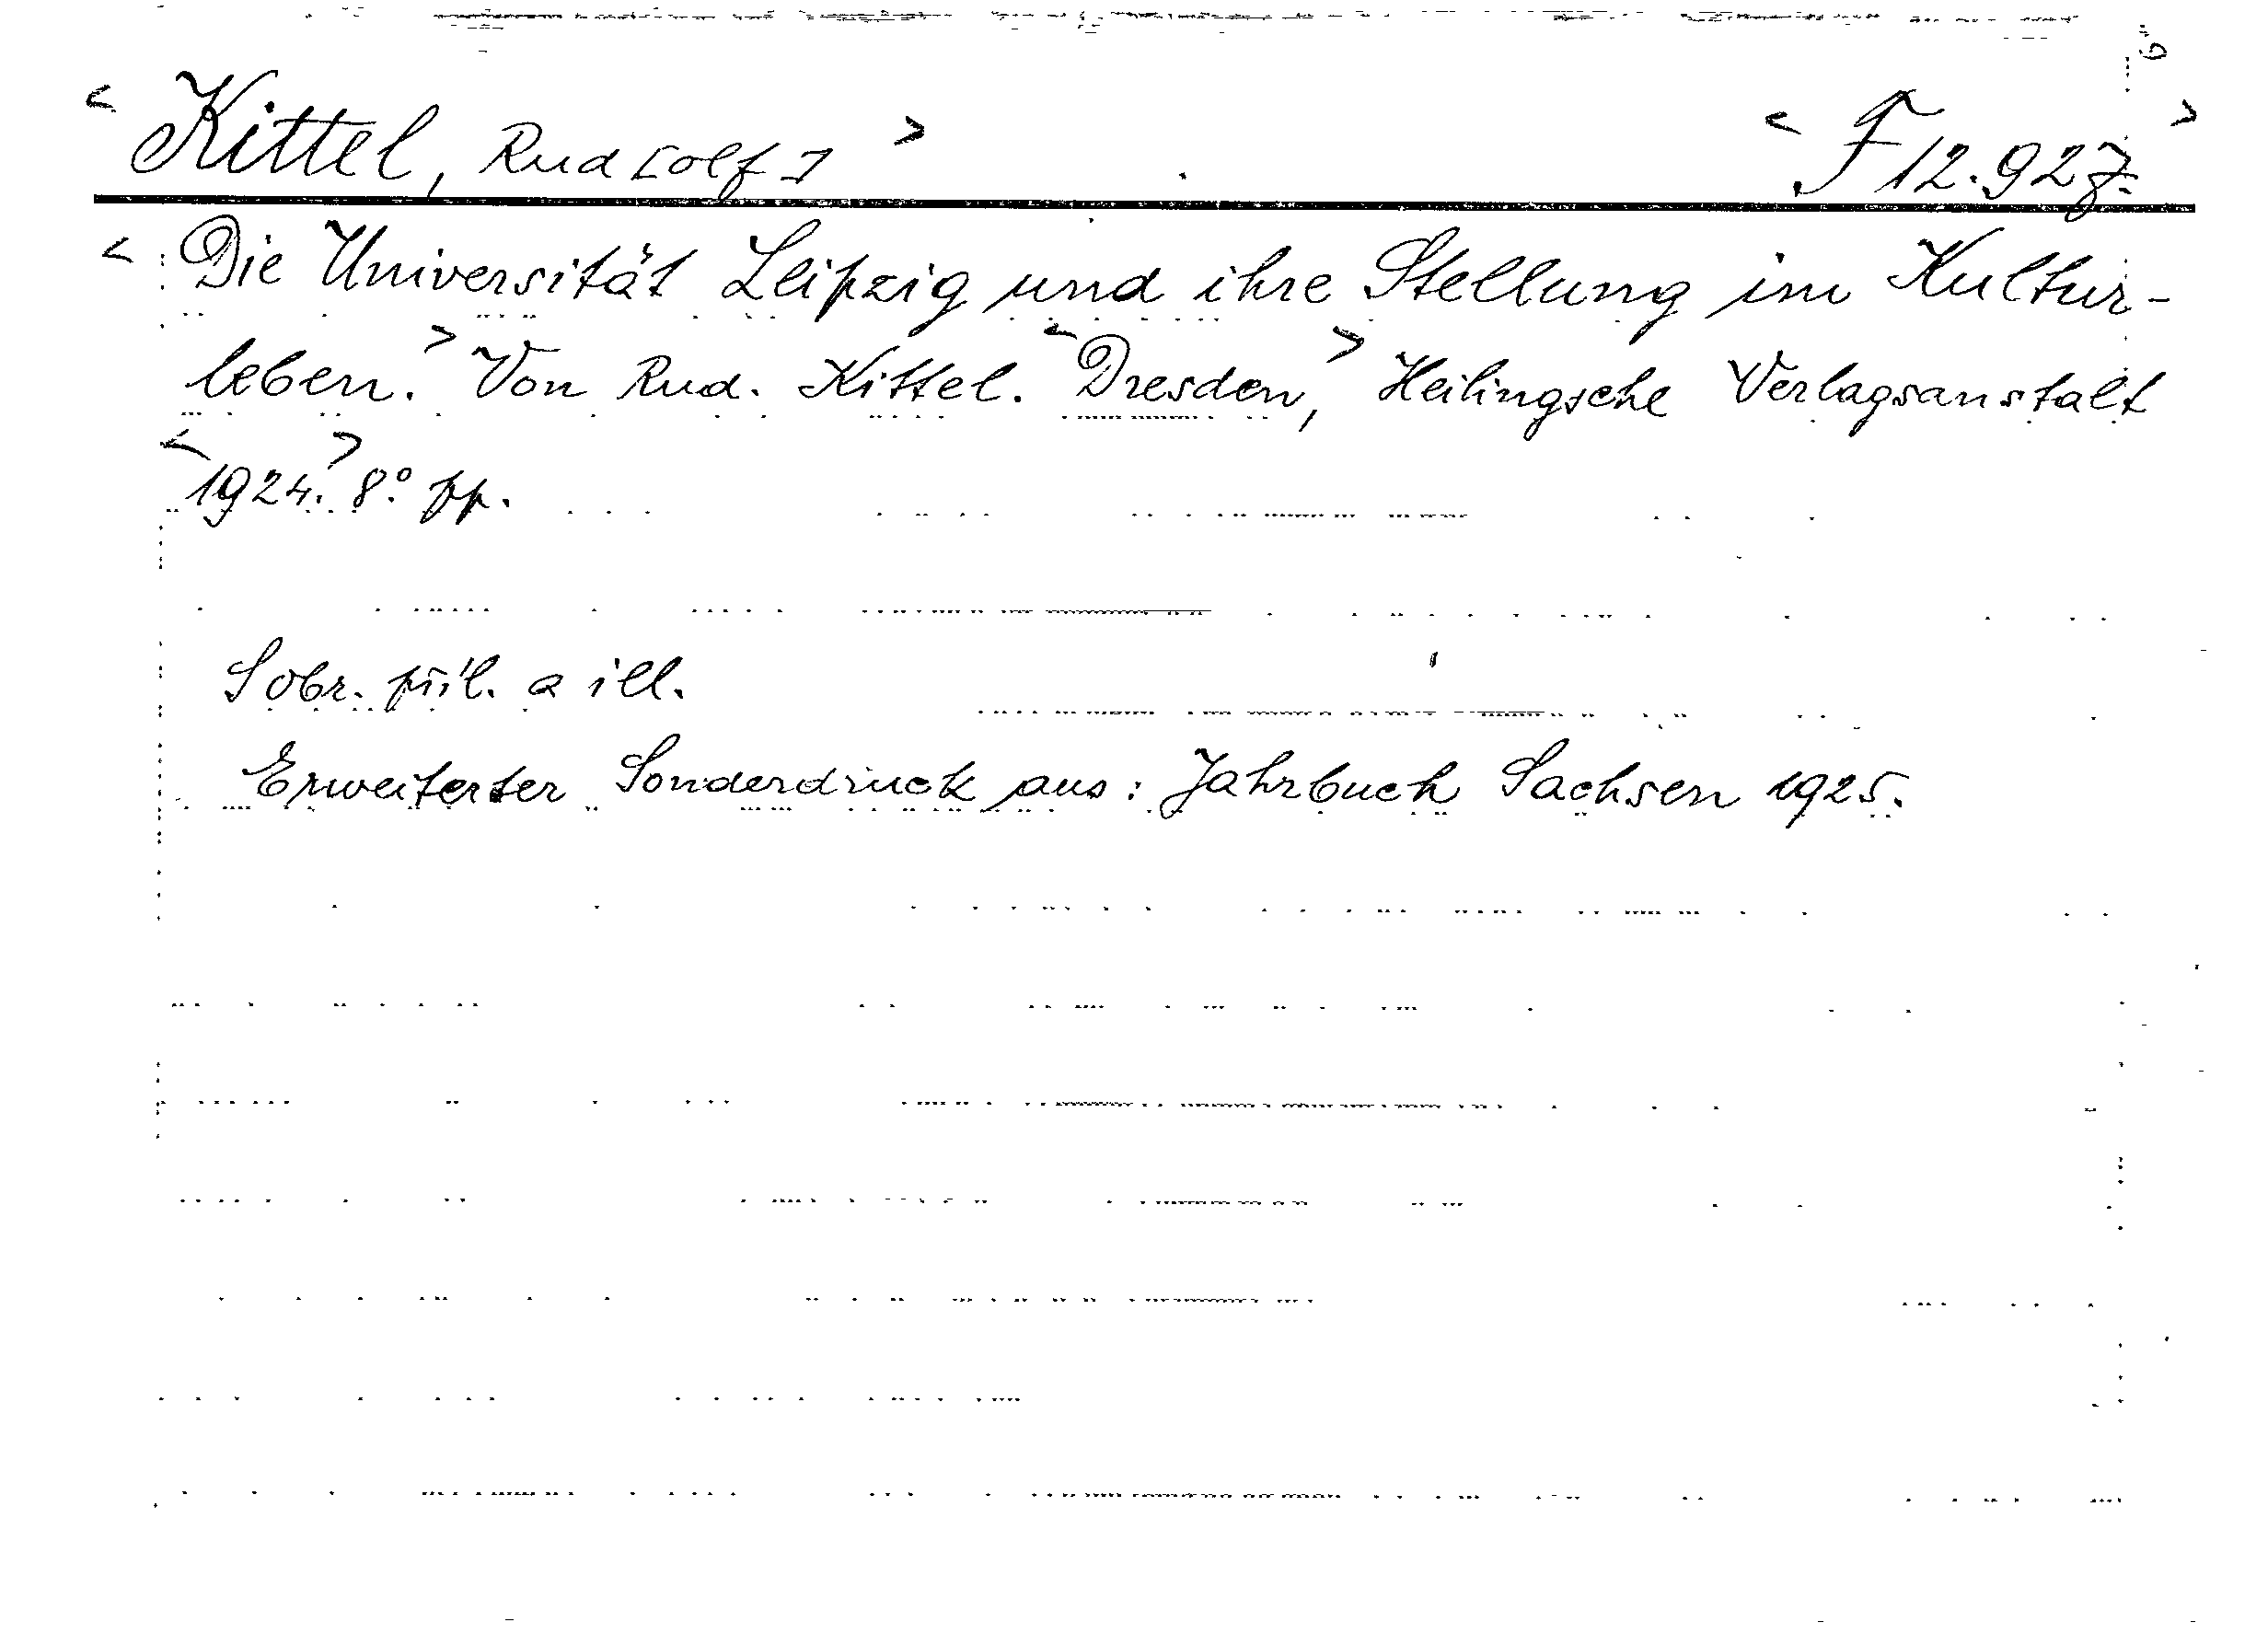 < Kittel, Rud[olf] > < F 12.927. >
< Die Universität Leipzig und ihre Stellung im Kultur-
leben. > Von Rud. Kittel. < Dresden, > Heilingsche Verlagsanstalt
< 1924. > 8° pp.
Sobr. příl. a ill.
Erweiterter Sonderdruck aus: Jahrbuch Sachsen 1925.